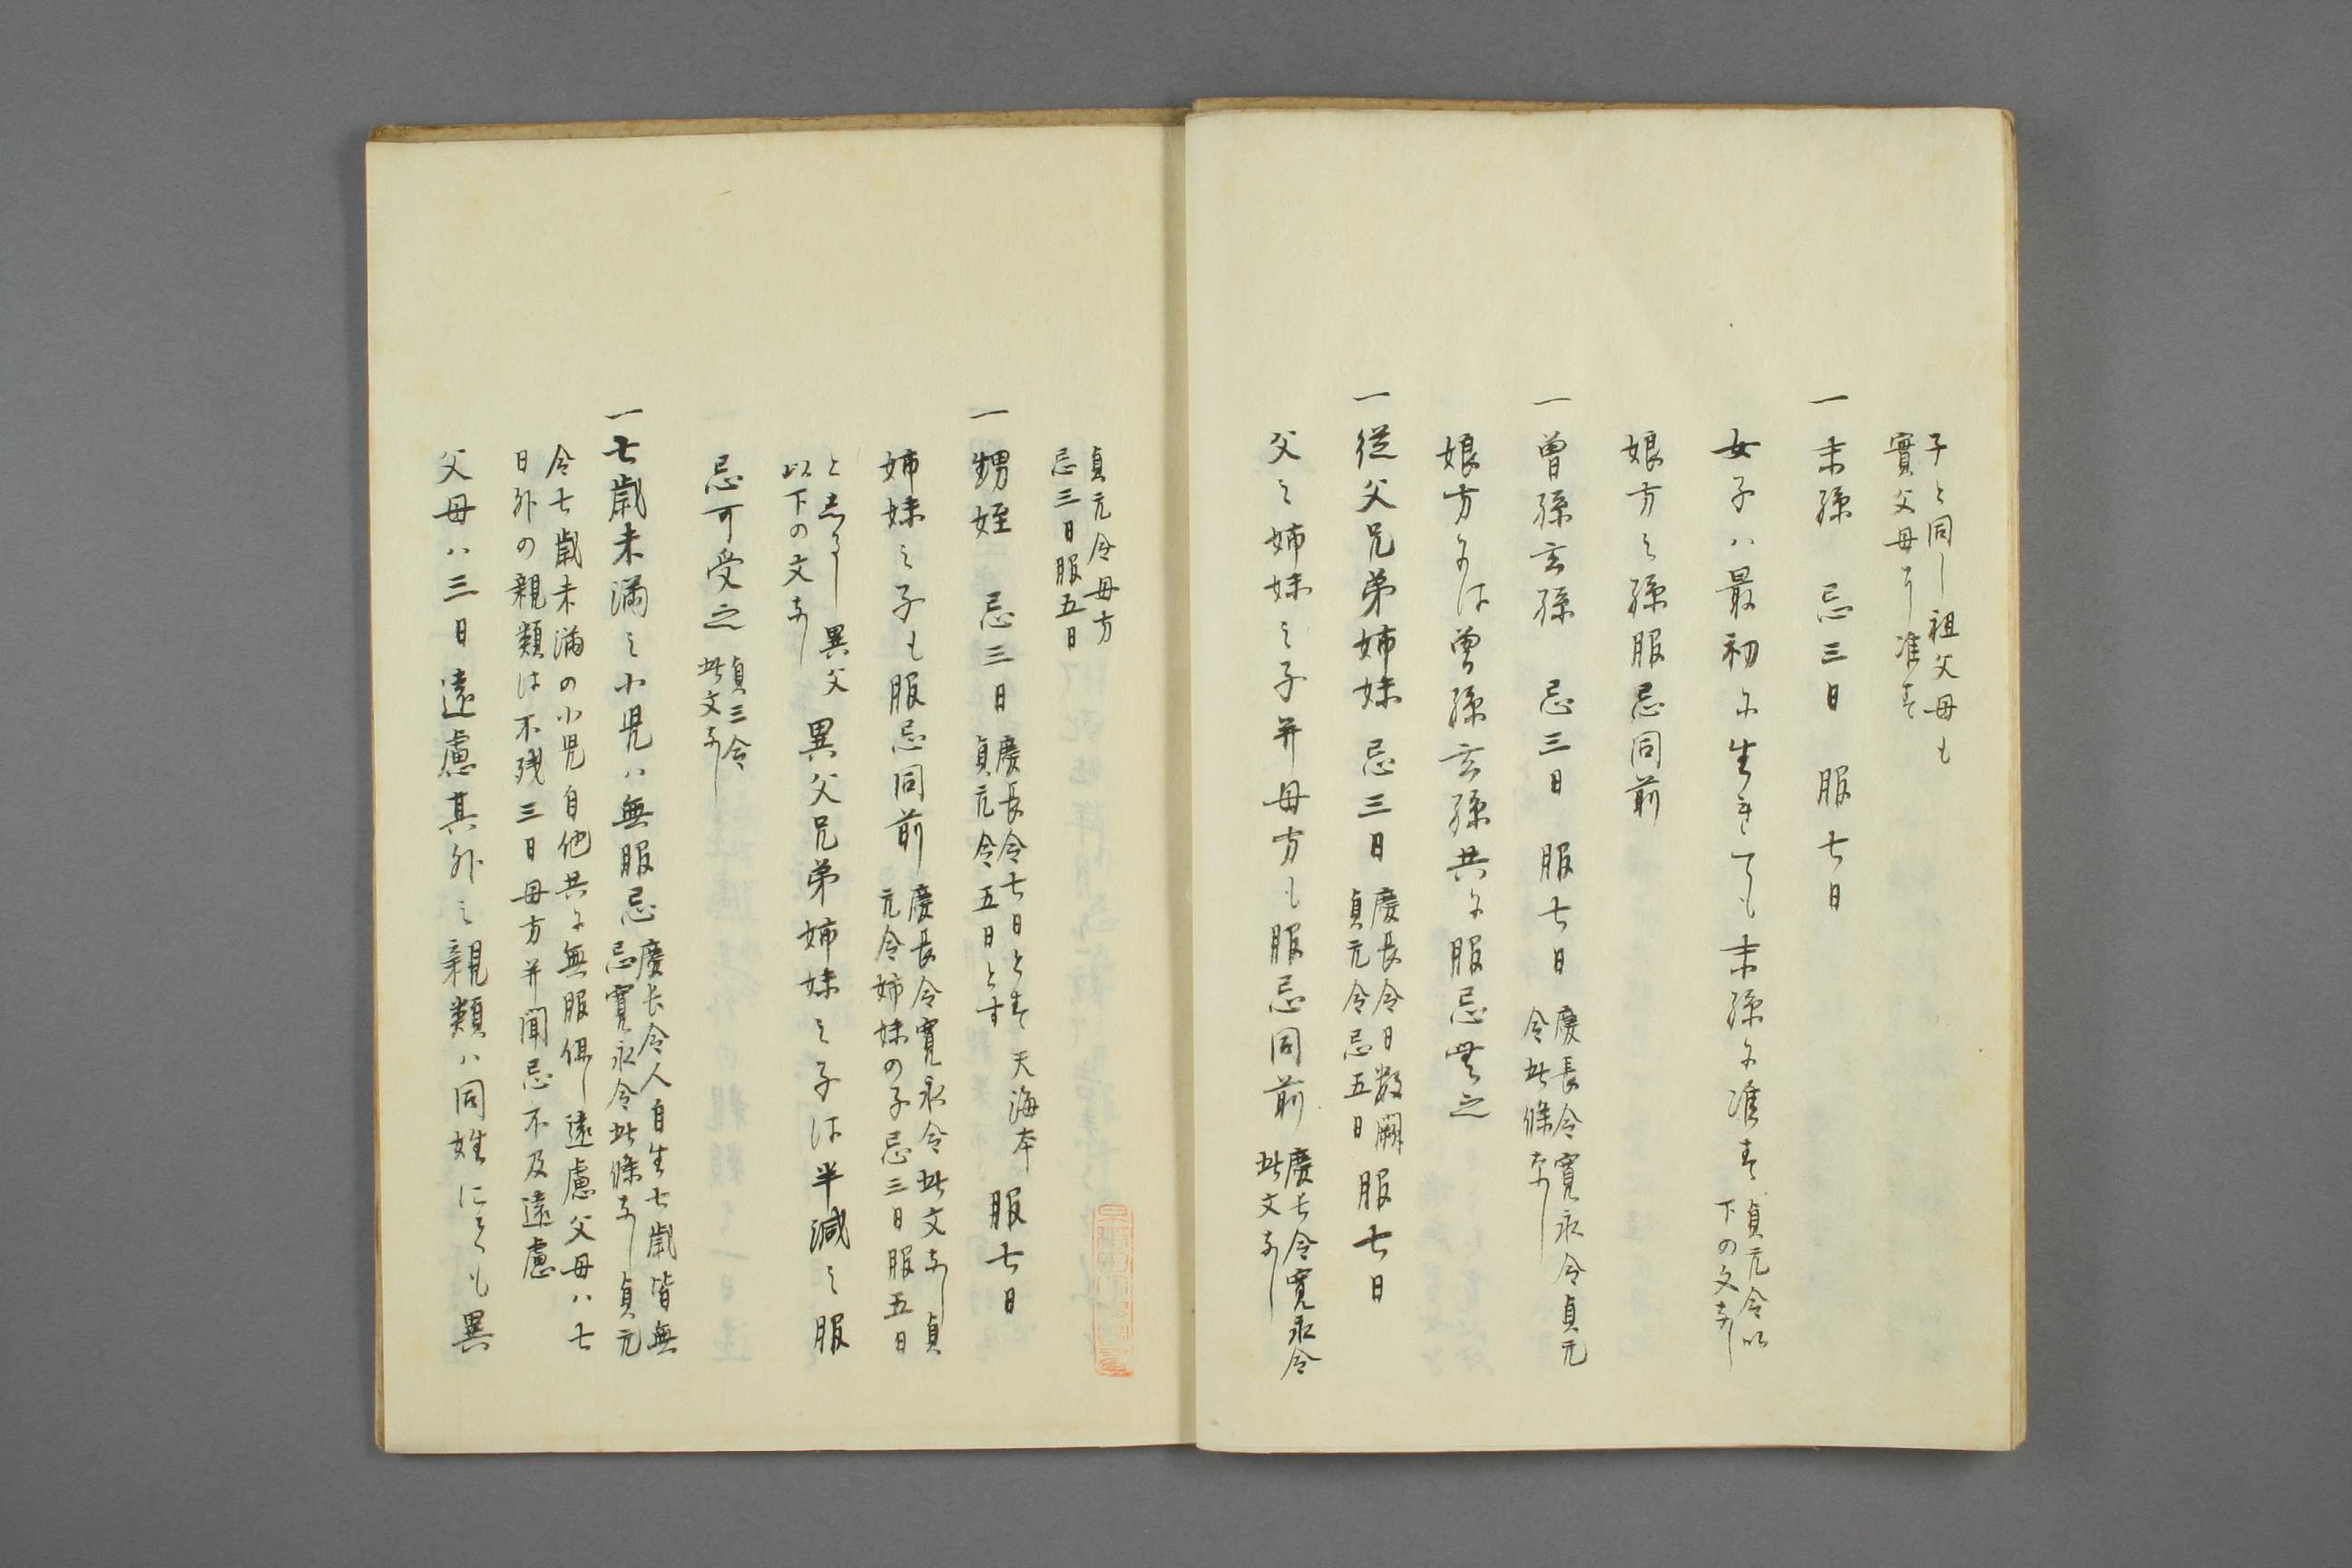 子と同し祖父母も
實父母に准す
一 末孫 忌三日 服七日
女子ハ最初に生きても末孫に准す
貞元令以
下の文なし
娘方之孫服忌同前
一 曽孫玄孫 忌三日 服七日
慶長令寛永令貞元
令此條なし
娘方には曽孫玄孫共に服忌無之
一 従父兄弟姉妹 忌三日
慶長令日数闕
貞元令忌五日
服七日
父之姉妹之子并母方も服忌同前
慶長令寛永令
此文なし
貞元令母方
忌三日服五日
一 甥姪 忌三日
慶長令七日とす 天海本
貞元令五日とす
服七日
姉妹之子も服忌同前
慶長令寛永令此文なし貞
元令姉妹の子忌三日服五日
異父
以下の文なし
異父兄弟姉妹之子は半減之服
忌可受之
貞三令
此文なし
一 七歳未満之小児ハ無服忌
慶長令人自生七歳皆無
忌寛永令此條なし貞元
令七歳未満の小児自他共に無服但し遠慮父母ハ七
日外の親類は不残三日母方并聞忌不及遠慮
父母ハ三日遠慮其外之親類ハ同姓にても異